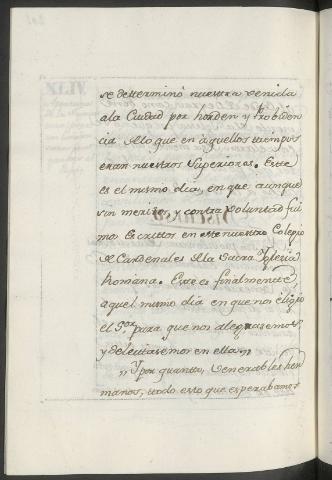 se determinó nuestra venida
ala Ciudad por horden y Probiden
cia de lo que en aquellos tiempos
eran nuestros Superiores. Este
es el mismo dia, en que aunque
sin meritos, y contra voluntad fui
mos Escritos en este nuestro Colegio
de Cardenales de la Sacra Yglesia
Romana. Este es finalmente
aquel mismo dia en que nos eligio
el S.or para que nos alegrasemos
y deleitasemos en ella.
,, Y por quanto, venerables her
manos, todo esto que esperabamos